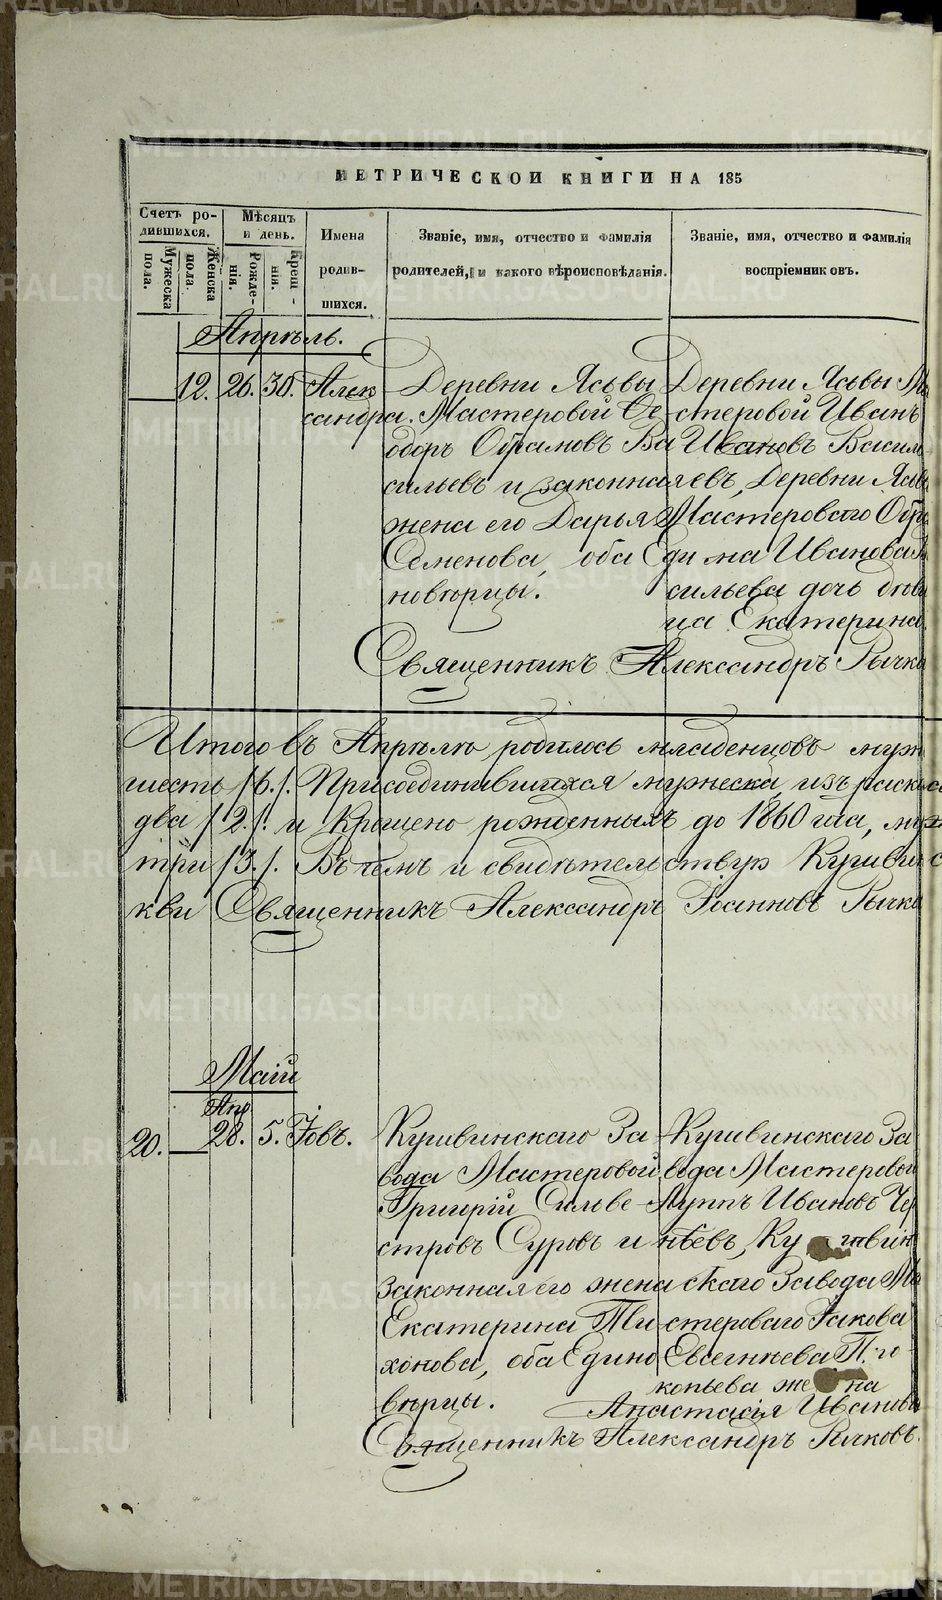 МЕТРИЧЕСКОЙ КНИГИ НА 185
Счетъ ро-
дившихся.
Мѣсяцъ
и день.
Имена
родив-
шихся.
Званіе, имя, отчество и фамилія
родителей, и какого вѣроисповѣданія.
Званіе, имя, отчество и фамилія
воспріемниковъ.
Мужеска
пола.
Женска
пола.
Рожде-
нія.
Крещ-
нія.
Апрѣль.
12. 26. 30. Алек
сандра.
Деревни Ясьвы
Мастеровой Ѳе-
одоръ Обрамовъ Ва
сильевъ и законная
жена его Дарья
Семенова, оба Еди
новѣрцы.
Деревни Ясьвы Ма
стеровой Иванъ
Ивановъ Василь
евъ, Деревни Ясьв
Мастероваго Обра
ма Иванова Ва
сильева дочь дѣви
ца Екатерина.
Священникъ Александръ Рычко
Итого въ Апрѣлѣ родилось младенцовъ муж
шесть /6./. Присоединившихся мужеска, изъ раскол
два /2./. и Крещено рожденныхъ до 1860 года, муж
три /3./. Въ чемъ и свидѣтельствую Кушвинс
кви Священникъ Александръ Іоанновъ Рычко
Маій
Апр
20. 28. 5. Іовъ.
Кушвинскаго За
вода Мастеровой
Григорій Сильве-
стровъ Суровъ и
законная его жена
Екатерина Ти
хонова, оба Едино
вѣрцы.
Кушвинскаго За
вода Мастеровой
Луппъ Ивановъ Чер
нѣевъ, Ку швин
скаго Завода Ма
стероваго Іакова
Евсегнѣева Про
копьева же на
Анастасія Иванова
Священникъ Александръ Рычковъ.
METRIKI.GASO-URAL.RU